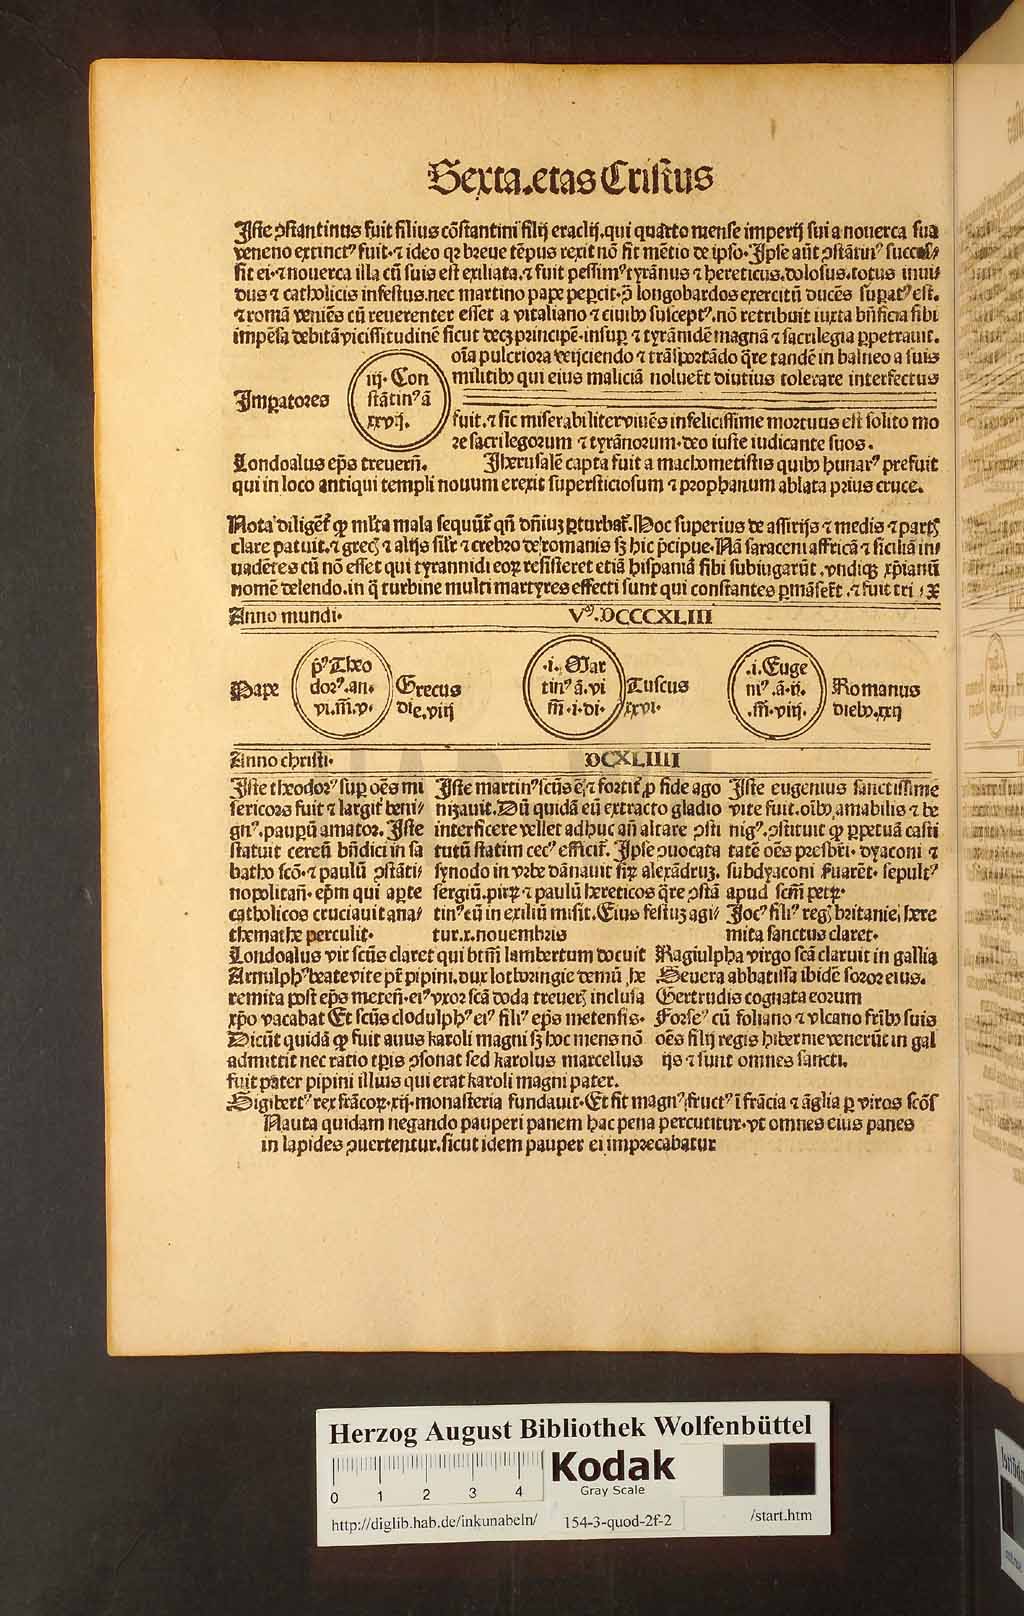 Sexta.etas Cristus
Iste ꝯstantinus fuit filius cõstantini filij eraclij.qui quarto mense imperij sui a nouerca sua
veneno extinctꝰ fuit.⁊ ideo qꝛ breue tẽpus rexit nõ fit mẽtio de ipso. Ipse aũt ꝯstãtinꝰ succes⸗
sit ei.⁊ nouerca illa cũ suis est exiliata.⁊ fuit pessimꝰ tyrãnus ⁊ hereticus.dolosus.totus inui⸗
dus ⁊ catholicis infestus.nec martino pape peꝑcit.ꝑ longobardos exercitũ ducẽs suꝑatꝰ est.
⁊ romã veniẽs cũ reuerenter esset a vitaliano ⁊ ciuibꝫ susceptꝰ.nõ retribuit iuxta bñficia sibi
impẽsa debitã vicissitudinẽ sicut decꝫ principẽ.insuꝑ ⁊ tyrãnidẽ magnã ⁊ sacrilegia ꝑpetrauit.
oĩa pulcriora veijciendo ⁊ trãsportãdo q̃re tandẽ in balneo a suis
militibꝫ qui eius maliciã noluer̃t diutius tolerare interfectus
Imꝑatores
iij. Con
stãtinꝰ ã
xxvij.
fuit.⁊ sic miserabiliter viuẽs infelicissime mortuus est solito mo
re sacrilegorum ⁊ tyrãnorum.deo iuste iudicante suos.
Londoalus ep̃s treuereñ. Iherusalẽ capta fuit a machometistis quibꝫ hunarꝰ prefuit
qui in loco antiqui templi nouum erexit supersticiosum ⁊ prophanum ablata prius cruce.
Nota diligẽt̃ ꝙ ml̃ta mala sequũt̃ qñ dñiuꝫ ꝑturbat̃. Hoc superius de assirijs ⁊ medis ⁊ partꝭ
clare patuit.⁊ grecꝭ ⁊ alijs sil̃r ⁊ crebro de romanis sꝫ hic p̃cipue. Nã saraceni affricã ⁊ siciliã in⸗
uadẽtes cũ nõ esset qui tyrannidi eoꝝ resisteret etiã hispaniã sibi subiugarũt.vndiqꝫ xp̃ianũ
nomẽ delendo.in q̃ turbine multi martyres effecti sunt qui constantes ꝑmãser̃t.⁊ fuit tri⸗ x̃
Anno mundi. Vᵐ.DCCCXLIII
Pape
p̃ꝰ Theo
dorꝰ.an.
vi.m̃.v.
Grecus
die.viij
.i. Mar
tinꝰ ã.vi
m̃.i.di.
Tuscus
xxvi.
.i. Euge
niꝰ .ã.ij.
.m̃.viij.
Romanus
diebꝫ.xxij
Anno christi. DCXLIIII
Iste theodorꝰ suꝑ oẽs mi
sericors fuit ⁊ largit̃ beni⸗
gnꝰ.pauꝑũ amator. Iste
statuit cereũ bñdici in sa
batho scõ.⁊ paulũ ꝯstãti⸗
nopolitañ. ep̃m qui aꝑte
catholicos cruciauit ana⸗
themathe perculit.
Iste martinꝰ scũs ẽ ⁊ fortit̃ ꝓ fide ago
nizauit. Dũ quidã eũ extracto gladio
interficere vellet adhuc añ altare ꝯsti
tutũ statim cecꝰ efficit̃. Ipse ꝯuocata
synodo in vrbe dãnauit siꝝ alexãdruꝫ.
sergiũ.pirꝝ ⁊ paulũ hereticos q̃re ꝯstã
tinꝰ eũ in exiliũ misit. Eius festuꝫ agi⸗
tur.x.nouembris
Iste eugenius sanctissime
vite fuit.oĩbꝫ amabilis ⁊ be
nigꝰ.ꝯstituit ꝙ ꝑpetuã casti
tatẽ oẽs presbri. dyaconi ⁊
subdyaconi suarẽt. sepultꝰ
apud scm̃ petꝝ.
Iocꝰ filiꝰ regꝭ britanie, here
mita sanctus claret.
Londoalus vir scũs claret qui btm̃ lambertum docuit
Arnulphꝰ beate vite pr̃ pipini.dux lothoringie demũ he
remita post ep̃s meteñ.eiꝰ vxor scã doda treuerꝭ inclusa
xp̃o vacabat Et scũs clodulphꝰ eiꝰ filiꝰ ep̃s metensis.
Dicũt quidã ꝙ fuit auus karoli magni sꝫ hoc mens nõ
admittit nec ratio tp̃is ꝯsonat sed karolus marcellus
fuit pater pipini illius qui erat karoli magni pater.
Ragiulpha virgo scã claruit in gallia
Seuera abbatissa ibidẽ soror eius.
Gertrudis cognata eorum
Forseꝰ cũ foliano ⁊ vlcano fr̃ibꝫ suis
oẽs filij regis hibernie venerũt in gal
ijs ⁊ sunt omnes sancti.
Sigibertꝰ rex frãcoꝝ.xij.monasteria fundauit. Et fit magnꝰ fructꝰ ĩ frãcia ⁊ ãglia ꝑ viros scõs
Nauta quidam negando pauperi panem hac pena percutitur.vt omnes eius panes
in lapides ꝯuertentur.sicut idem pauper ei imprecabatur
Herzog August Bibliothek Wolfenbüttel
0 1 2 3 4
Kodak
Gray Scale
http://diglib.hab.de/inkunabeln/ 154-3-quod-2f-2 /start.htm